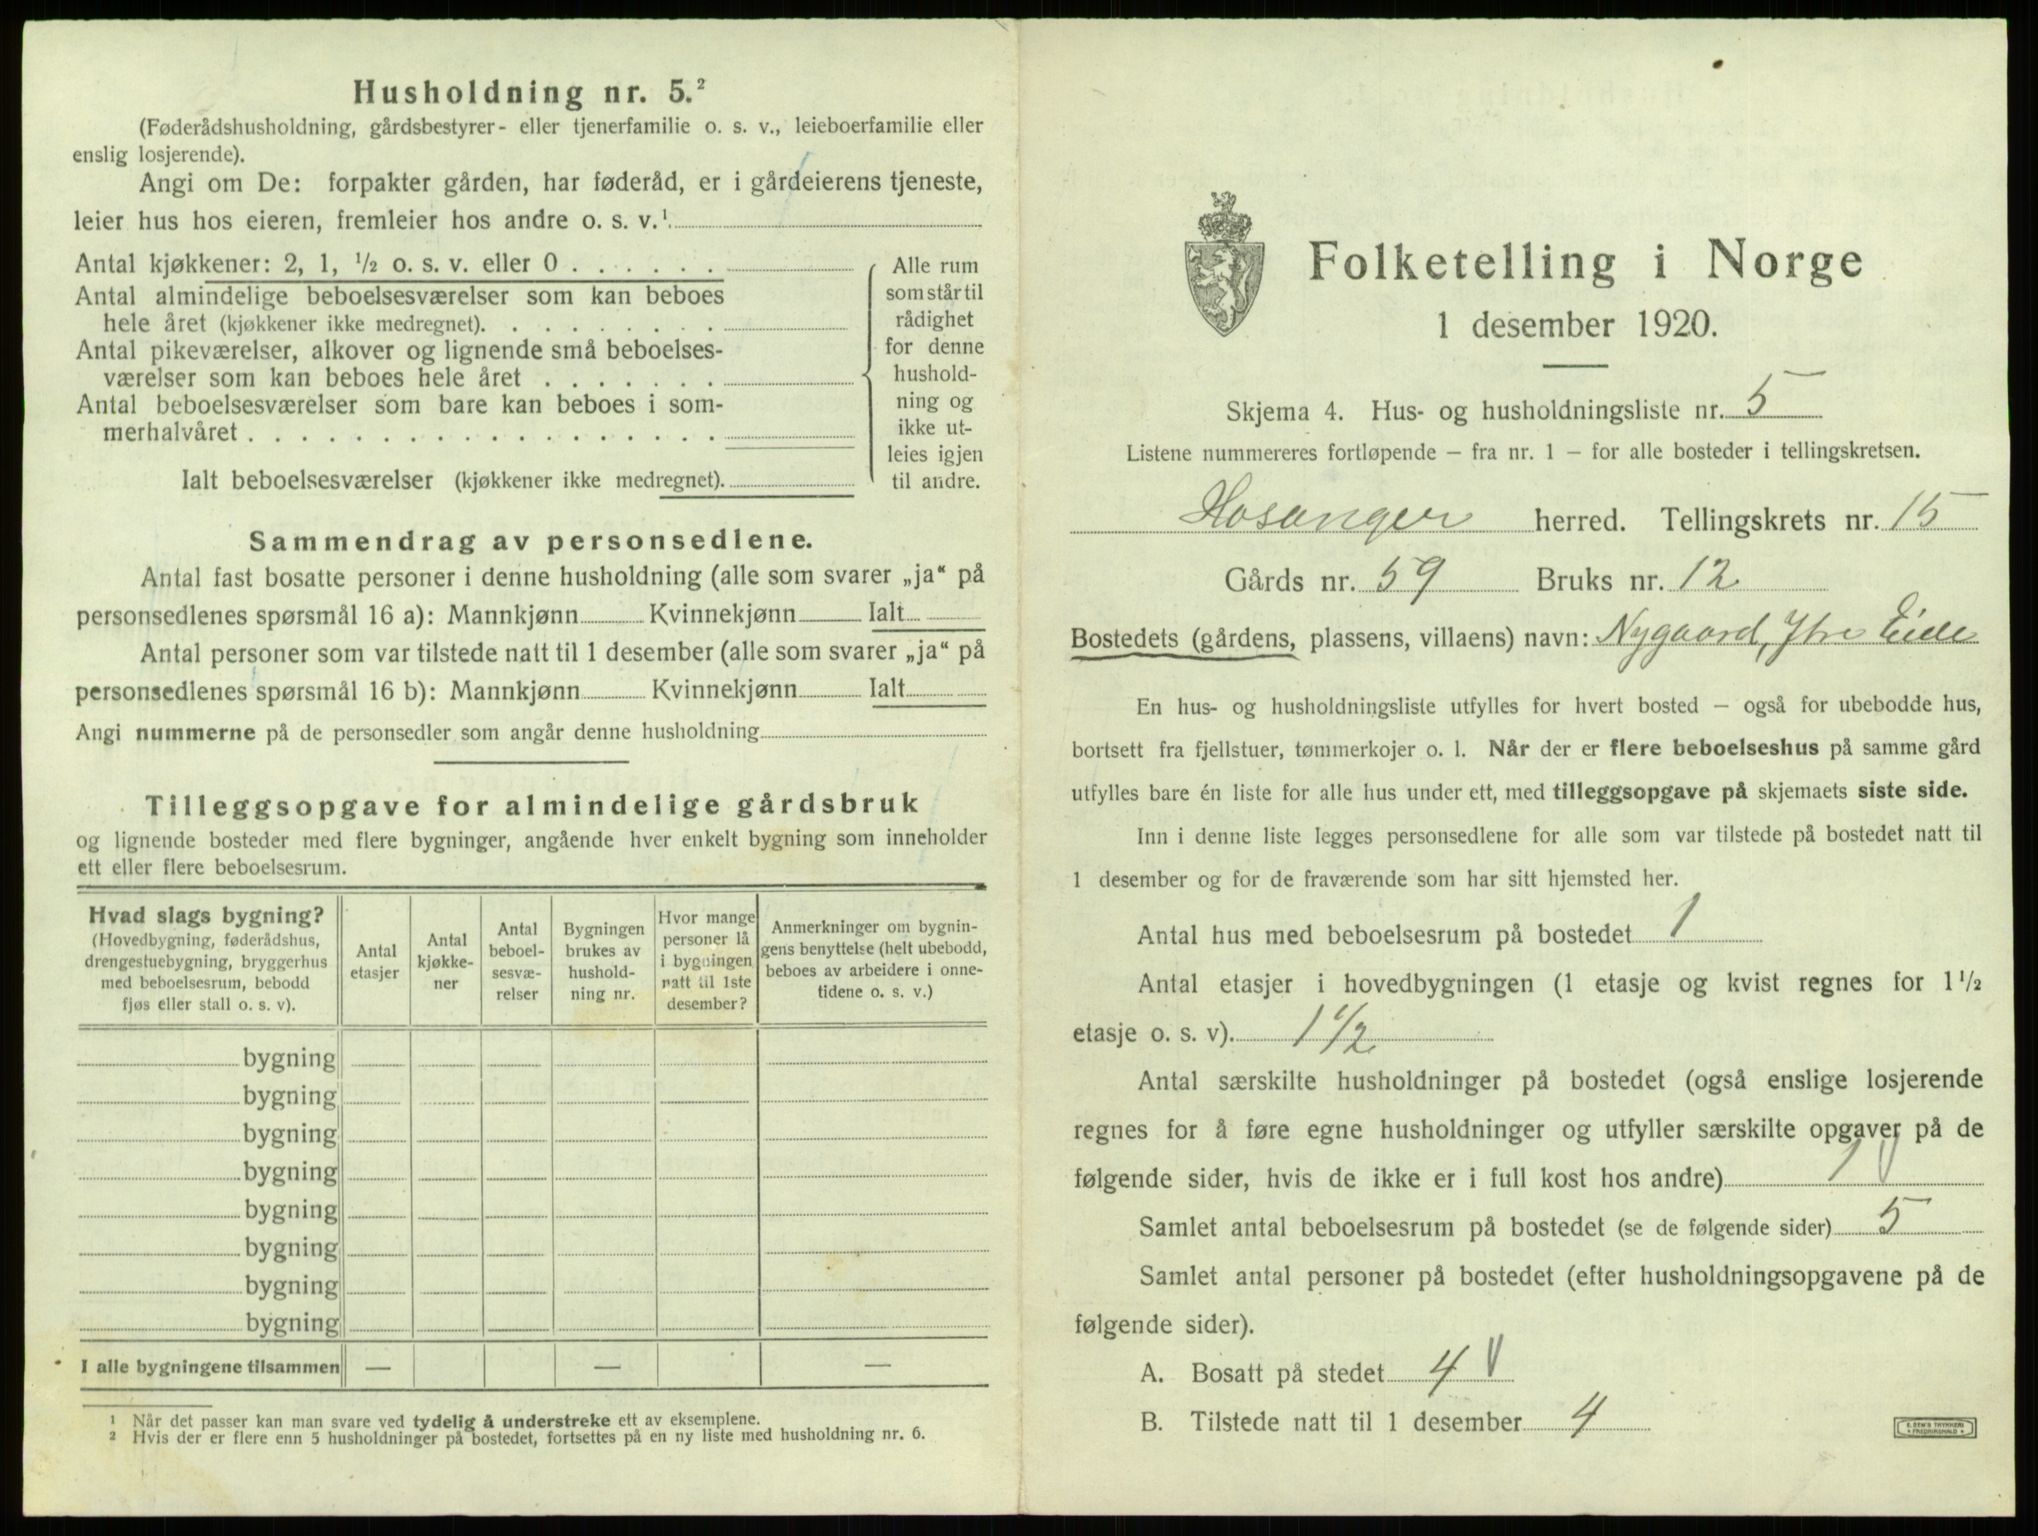 Husholdning nr. 5.²
(Føderådshusholdning, gårdsbestyrer- eller tjenerfamilie o. s. v., leieboerfamilie eller
enslig losjerende).
Angi om De: forpakter gården, har føderåd, er i gårdeierens tjeneste,
leier hus hos eieren, fremleier hos andre o. s. v.¹
Antal kjøkkener: 2, 1, ½ o. s. v. eller 0
Antal almindelige beboelsesværelser som kan beboes
hele året (kjøkkener ikke medregnet).
Antal pikeværelser, alkover og lignende små beboelses-
værelser som kan beboes hele året
Antal beboelsesværelser som bare kan beboes i som-
merhalvåret
Ialt beboelsesværelser (kjøkkener ikke medregnet).
Alle rum
som står til
rådighet
for denne
hushold-
ning og
ikke ut-
leies igjen
til andre.
Sammendrag av personsedlene.
Antal fast bosatte personer i denne husholdning (alle som svarer „ja“ på
personsedlenes spørsmål 16 a): Mannkjønn Kvinnekjønn Ialt
Antal personer som var tilstede natt til 1 desember (alle som svarer „ja“ på
personsedlenes spørsmål 16 b): Mannkjønn Kvinnekjønn Ialt
Angi nummerne på de personsedler som angår denne husholdning
Tilleggsopgave for almindelige gårdsbruk
og lignende bosteder med flere bygninger, angående hver enkelt bygning som inneholder
ett eller flere beboelsesrum.
Hvad slags bygning?
(Hovedbygning, føderådshus,
drengestuebygning, bryggerhus
med beboelsesrum, bebodd
fjøs eller stall o. s. v).
Antal
etasjer
Antal
kjøkke-
ner
Antal
beboel-
sesvæ-
relser
Bygningen
brukes av
hushold-
ning nr.
Hvor mange
personer lå
i bygningen
natt til 1ste
desember?
Anmerkninger om bygnin-
gens benyttelse (helt ubebodd,
beboes av arbeidere i onne-
tidene o. s. v.)
bygning
bygning
bygning
bygning
bygning
bygning
bygning
bygning
I alle bygningene tilsammen — — —
¹ Når det passer kan man svare ved tydelig å understreke ett av eksemplene.
² Hvis der er flere enn 5 husholdninger på bostedet, fortsettes på en ny liste med husholdning nr. 6.
Folketelling i Norge
1 desember 1920.
Skjema 4. Hus- og husholdningsliste nr. 5
Listene nummereres fortløpende – fra nr. 1 – for alle bosteder i tellingskretsen.
Hosanger herred. Tellingskrets nr. 15
Gårds nr. 59 Bruks nr. 12
Bostedets (gårdens, plassens, villaens) navn: Nygaard, Ytre Eide
En hus- og husholdningsliste utfylles for hvert bosted – også for ubebodde hus,
bortsett fra fjellstuer, tømmerkojer o. l. Når der er flere beboelseshus på samme gård
utfylles bare én liste for alle hus under ett, med tilleggsopgave på skjemaets siste side.
Inn i denne liste legges personsedlene for alle som var tilstede på bostedet natt til
1 desember og for de fraværende som har sitt hjemsted her.
Antal hus med beboelsesrum på bostedet 1
Antal etasjer i hovedbygningen (1 etasje og kvist regnes for 1½
etasje o. s. v). 1 1/2
Antal særskilte husholdninger på bostedet (også enslige losjerende
regnes for å føre egne husholdninger og utfyller særskilte opgaver på de
følgende sider, hvis de ikke er i full kost hos andre) 1 V
Samlet antal beboelsesrum på bostedet (se de følgende sider) 5
Samlet antal personer på bostedet (efter husholdningsopgavene på de
følgende sider).
A. Bosatt på stedet 4 V
B. Tilstede natt til 1 desember 4